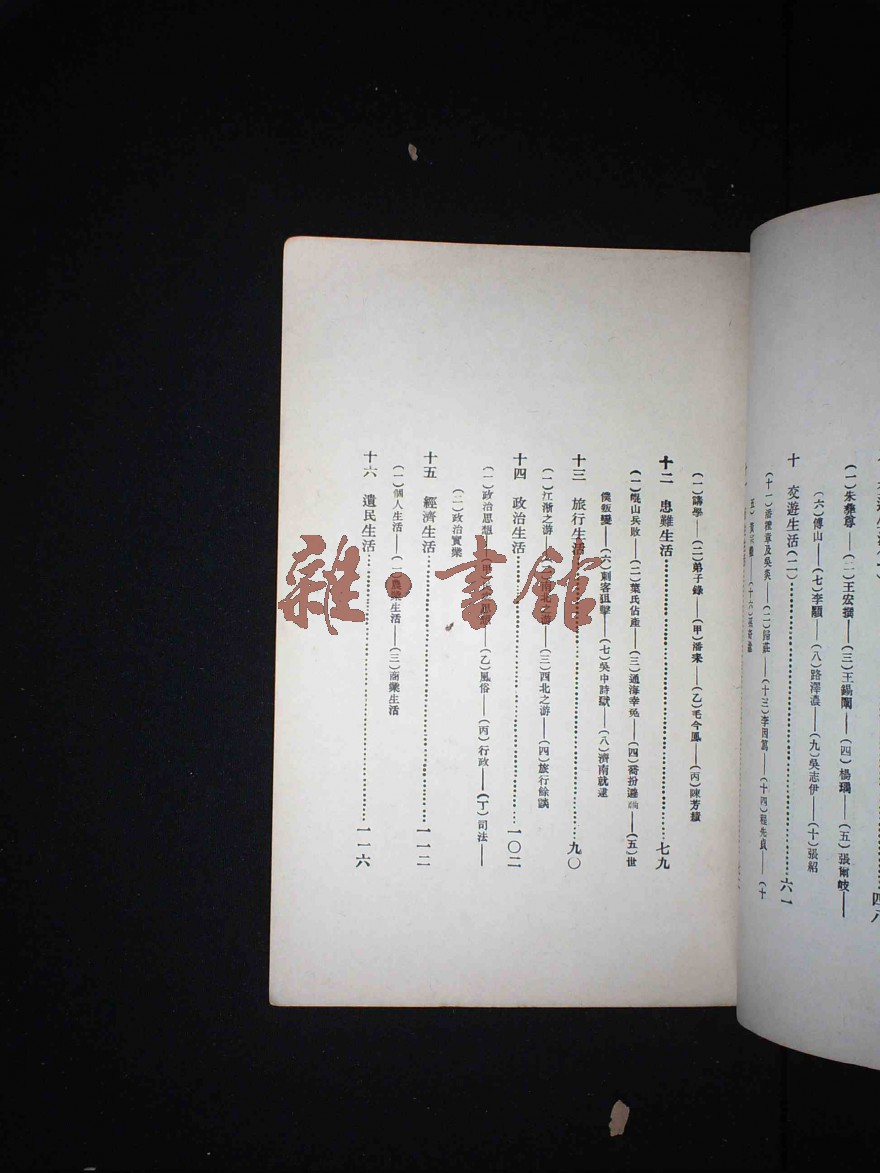 四八
(一)朱彝尊——(二)王宏撰——(三)王錫闡——(四)楊瑀——(五)張爾岐——
(六)傅山——(七)李顒——(八)路澤濃——(九)吳志伊——(十)張紹
十 交遊生活(二)……六一
(十一)潘檉章及吳炎——(十二)歸莊——(十三)李因篤——(十四)程先貞——(十
(一)講學——(二)弟子錄——(甲)潘耒——(乙)毛今鳳——(丙)陳芳績
十二 患難生活……七九
(一)崑山兵敗——(二)葉氏佔產——(三)通海幸免——(四)喬扮——(五)世
僕叛變——(六)刺客狙擊——(七)吳中詩獄——(八)濟南就逮
十三 旅行生活……九〇
(一)江浙之游——(二)南北之游——(三)西北之游——(四)旅行餘談
十四 政治生活……一〇二
(一)政治思想——(甲)——(乙)風俗——(丙)行政——(丁)司法——
(二)政治實業
十五 經濟生活……一一二
(一)個人生活——(二)農業生活——(三)商業生活
十六 遺民生活……一一六
雜·書館